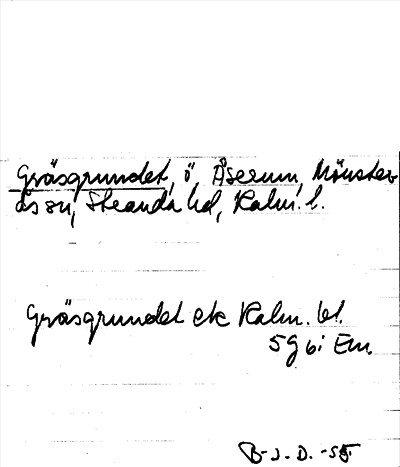 Gräsgrundet, ö, Åserum, Mönster
ås sn, Stranda hd, Kalm. l.
Gräsgrundet ek Kalm. bl.
5g bi Em.
B-J.D. -55